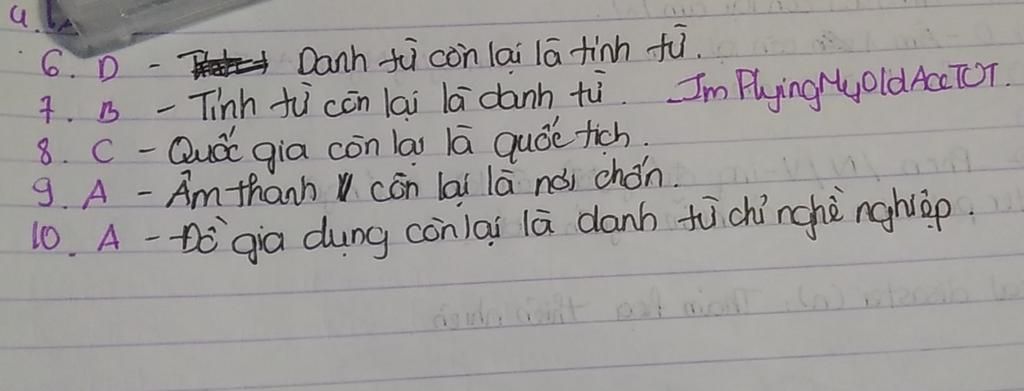 4.
6. D - Danh từ còn lại là tính từ.
7. B - Tính từ còn lại là danh từ. ImPlyingMyOldAccTOT.
8. C - Quốc gia còn lại là quốc tịch.
9. A - Âm thanh còn lại là nơi chốn.
10. A - Đồ gia dụng còn lại là danh từ chỉ nghề nghiệp.